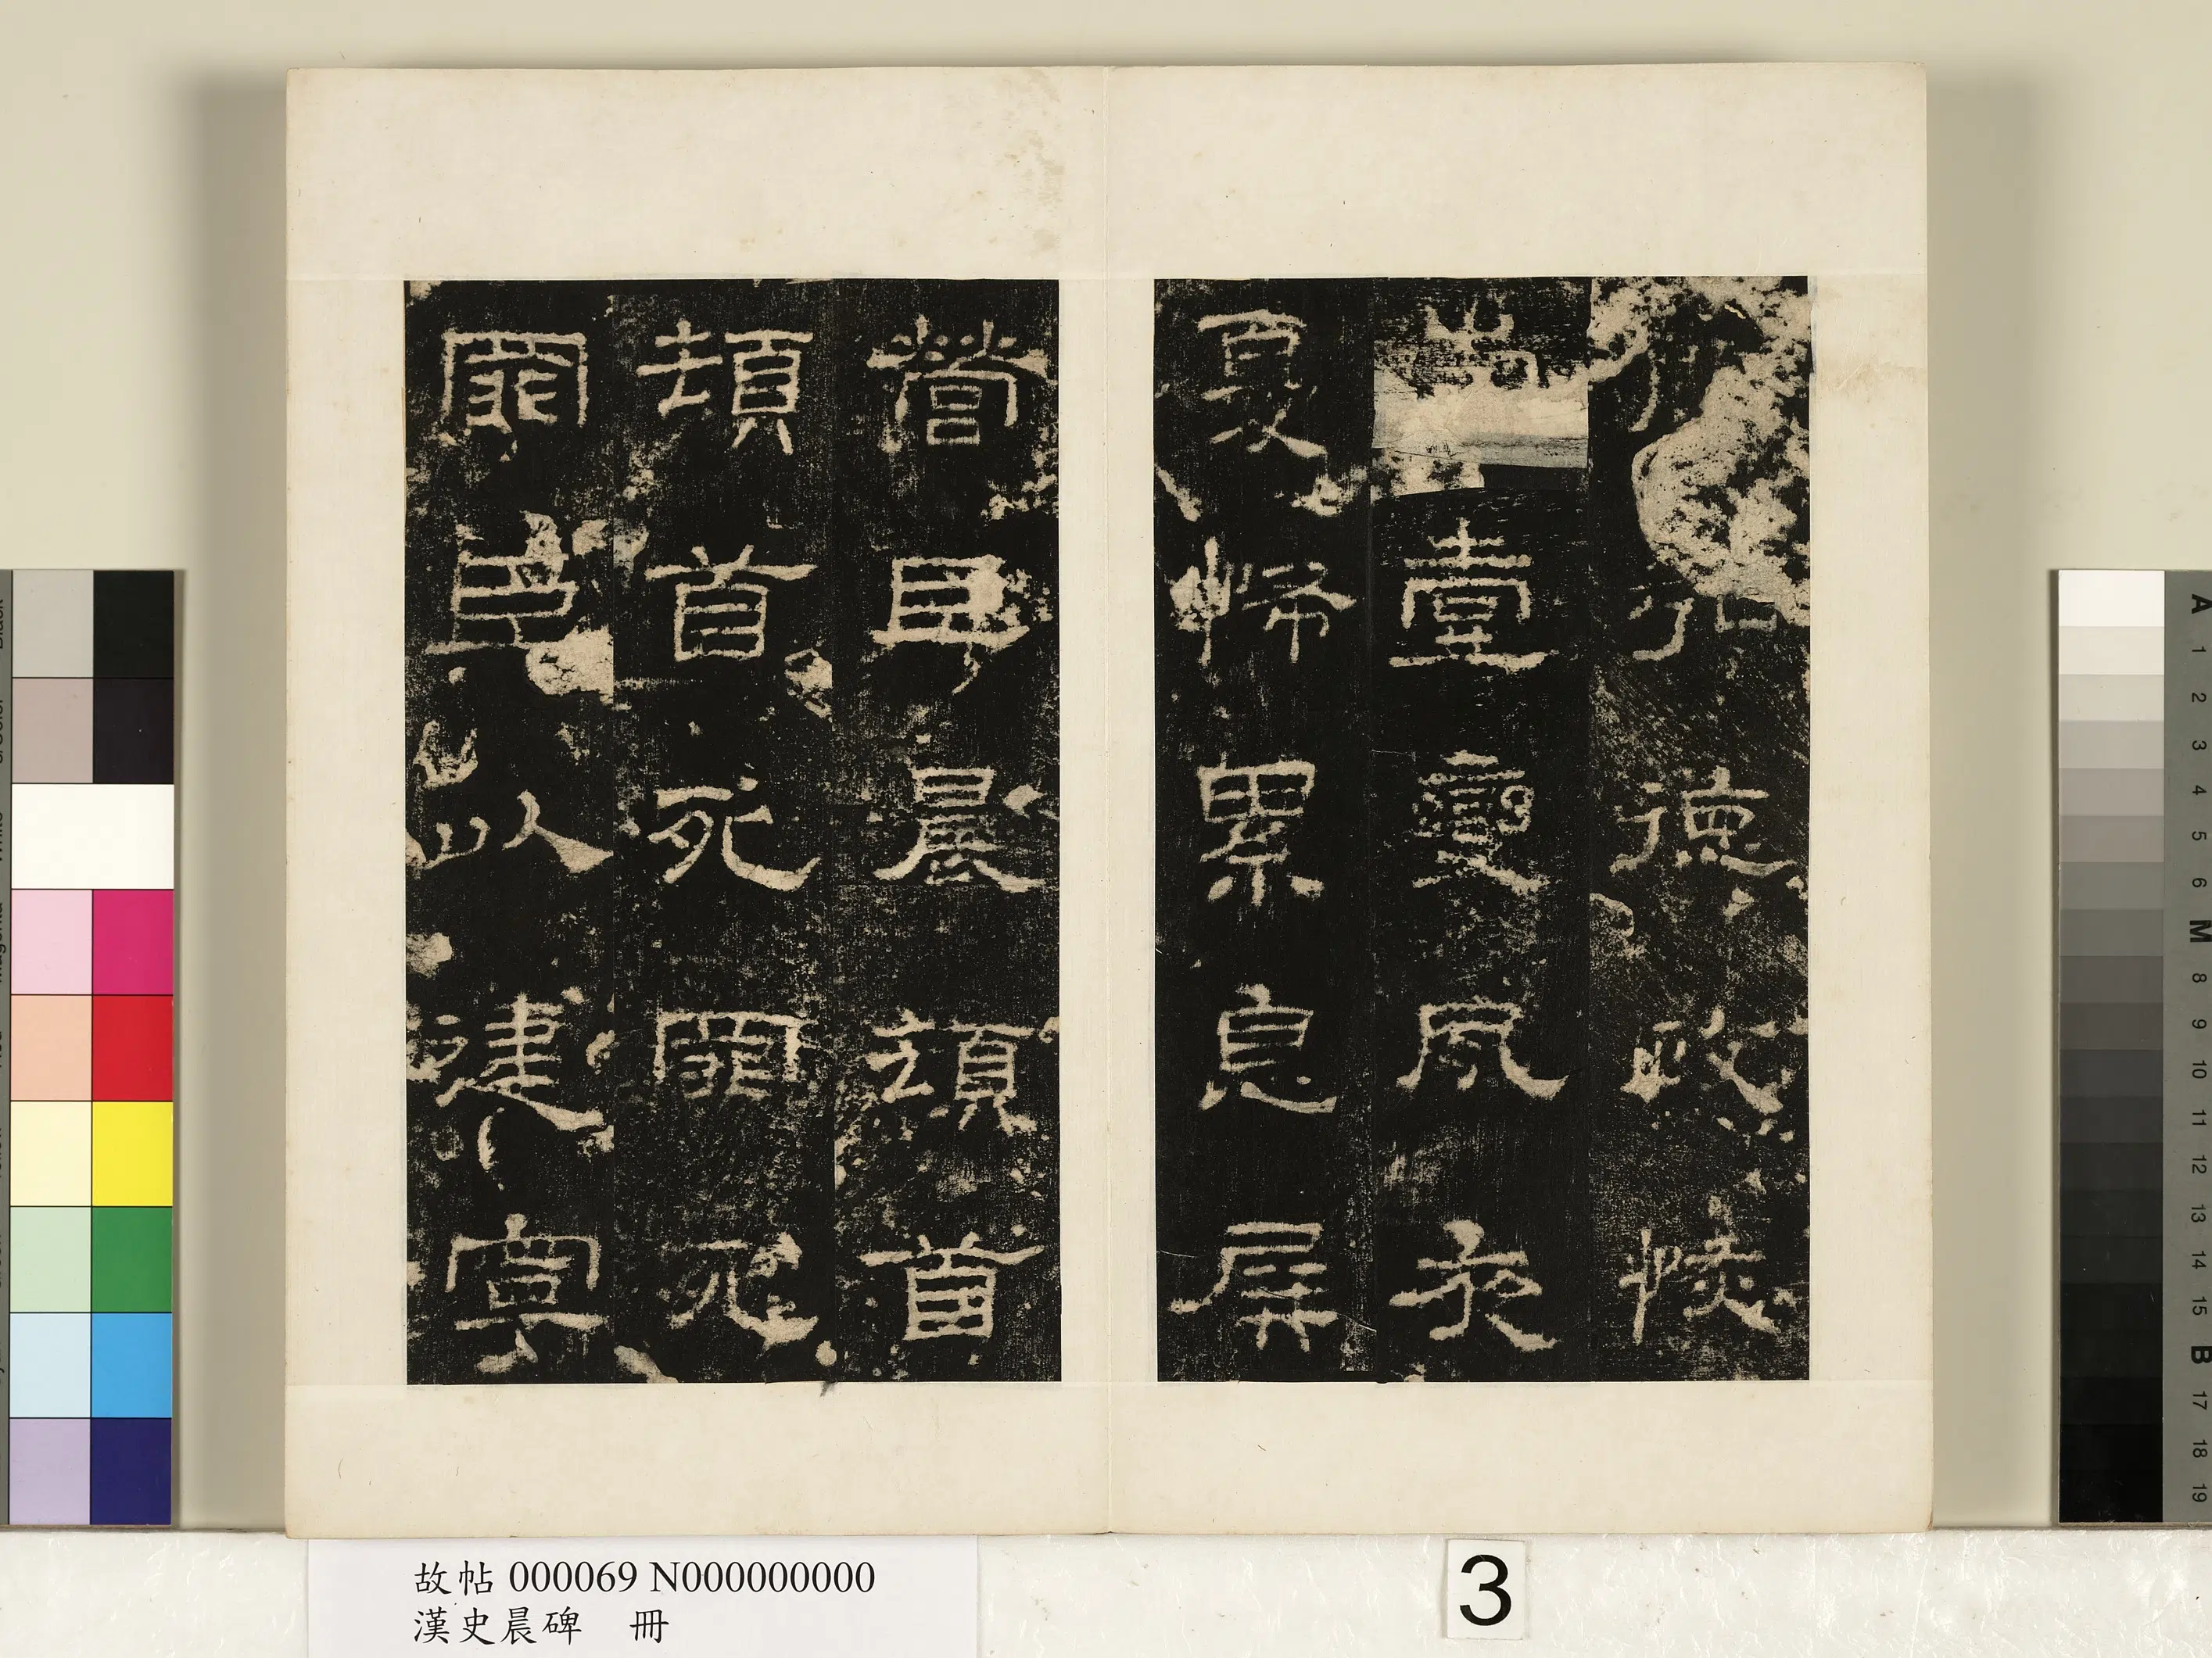 弘德政恢
崇壹變夙夜
憂怖累息屏
營臣晨頓首
頓首死罪死
罪臣以建寧
故帖 000069 N000000000
漢史晨碑 冊
3
A 1 2 3 4 5 6 M 8 9 10 11 12 13 14 15 B 17 18 19